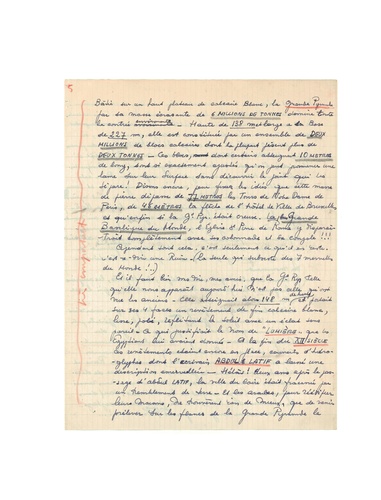 5
Bâtie sur un haut plateau de calcaire Blanc, la Grande Pyramide
par sa masse écrasante de 6 MILLIONS DE TONNES domine toute
la contrée environnante. Haute de 138 m et large à sa Base
de 227 m, elle est constituée par un ensemble de DEUX
MILLIONS de blocs calcaires dont la plupart pèsent plus de
DEUX TONNES — Ces blocs, dont certains atteignent 10 MÈTRES
de long, sont si exactement ajustés qu'on peut promener une
lame sur leur surface sans découvrir le joint qui les
sépare! Disons encore, pour fixer les idées que cette masse
de pierre dépasse de 77 MÈTRES les Tours de Notre Dame de
Paris, de 48 MÈTRES la flèche de l'Hôtel de Ville de Bruxelles
et qu'enfin si la Gde Pyr. était creuse, la plus Grande
Basilique du Monde, St Pierre de Rome y
tiendrait complètement avec ses
Cependant cela, c'est seulement ce qu'il en reste,
c'est-à-dire une Ruine. (La seule qui subsiste des 7 merveilles
du Monde!..)
Et il faut bien me dire, mes amis, que la Gde Pyr telle
qu'elle nous apparaît aujourd'hui N'est pas celle qu'ont
vue les anciens. Elle atteignait alors 148 m
sur ses 4 faces un revêtement de fin calcaire blanc,
lisse, poli, reflétant le soleil avec un éclat sans
pareil — Ce qui justifiait le Nom de "LUMIÈRE" que les
Égyptiens lui avaient donné — Et la fin du XIIe SIÈCLE
ces revêtements étaient encore en place, couverts d'hiéro-
glyphes dont l'écrivain ABDOUL LATIF a laissé une
description émerveillée — Hélas! Deux ans après le pas-
sage d'Abdul LATIF, la ville du Caire était
un tremblement de terre — Et les arabes, pour réédifier
leurs maisons, ne trouvèrent rien de mieux, que de venir
prélever sur les flancs de la Grande Pyramide le